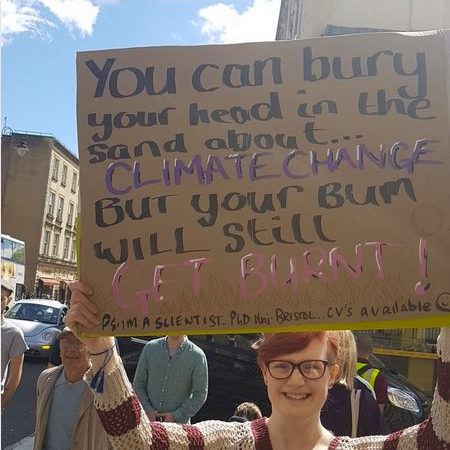 You can bury
your head in the
sand about...
CLIMATE CHANGE
But your Bum
will still
GET BURNT!
PS: IM A SCIENTIST. PhD Uni. BRISTOL. CV's available